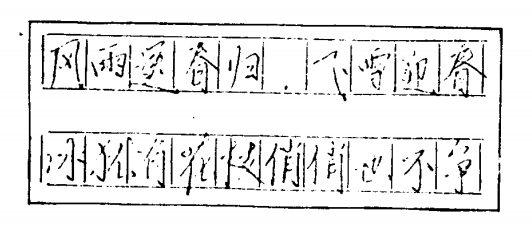 风雨送春归.飞雪迎春
冰犹有花枝俏俏也不争